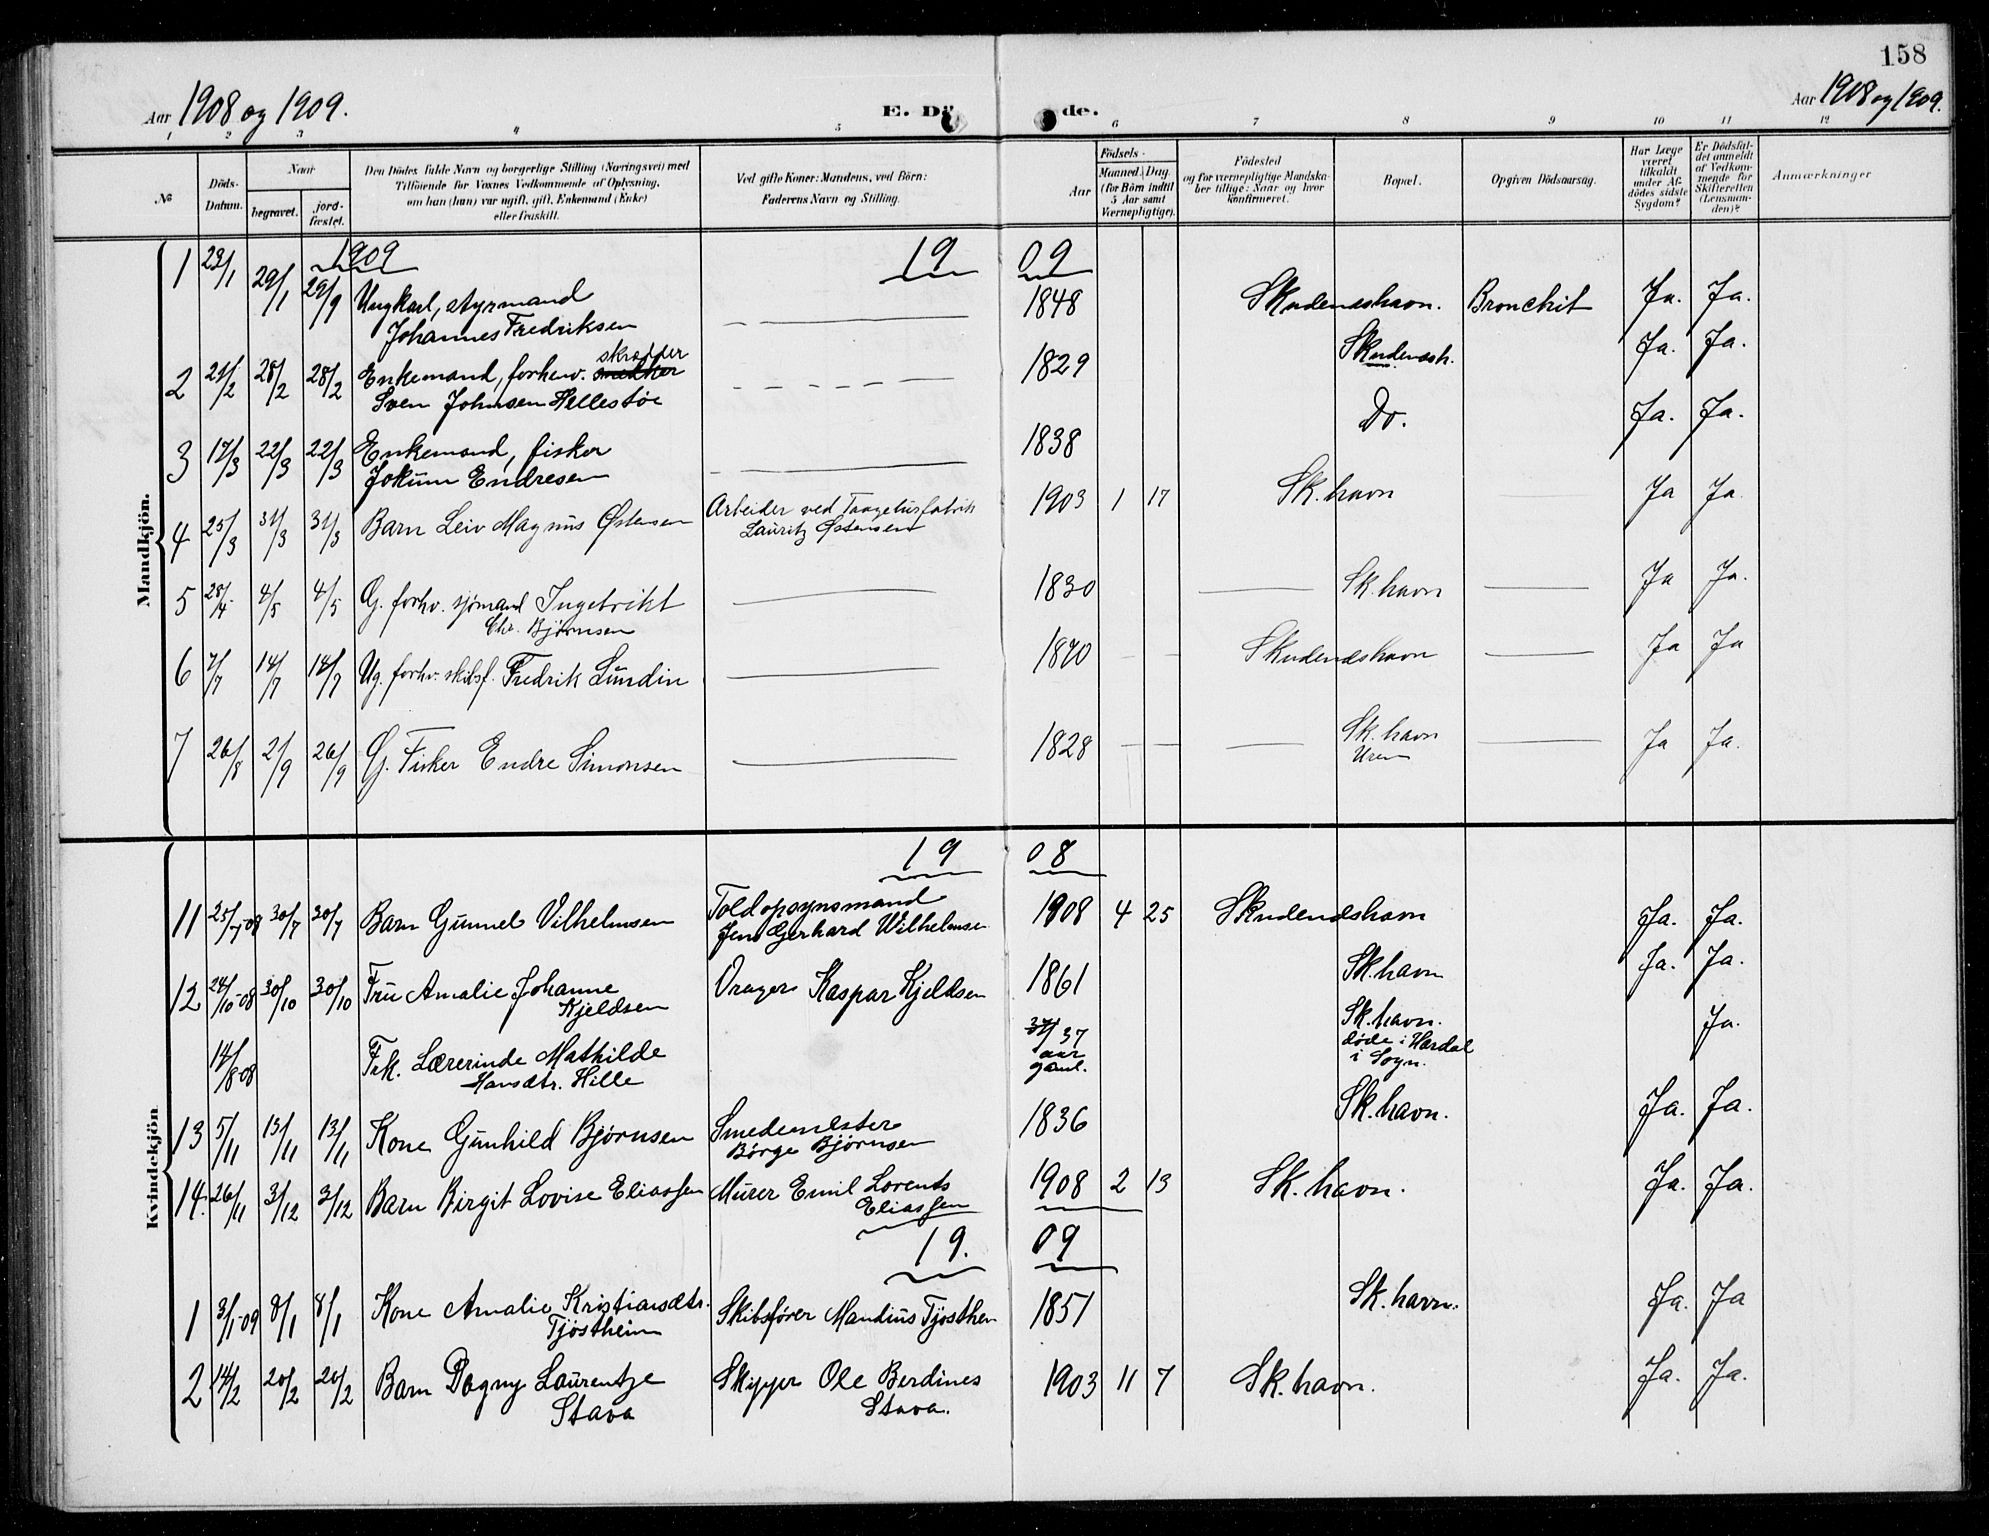 158
Aar 1908 og 1909.
E. Dö de.
Aar 1908 og 1909.
1 2 3 4 5 6 7 8 9 10 11 12
№
Döds-
Datum.
Naar
begravet.
jord-
fæstet.
Den Dödes fulde Navn og borgerlige Stilling (Næringsvei) med
Tilföiende for Voxnes Vedkommende af Oplysning,
om han (hun) var ugift, gift, Enkemand (Enke)
eller fraskilt.
Ved gifte Koner: Mandens, ved Börn:
Faderens Navn og Stilling.
Födsels-
Aar
Maaned. Dag.
(for Börn indtil
5 Aar samt
Værnepligtige).
Födested
og for værnepligtige Mandska-
ber tillige: Naar og hvor
konfirmeret.
Bopæl.
Opgiven Dödsaarsag.
Har Læge
været
tilkaldt
under Af-
dödes sidste
Sygdom?
Er Dödsfal-
det anmeldt
af Vedkom-
mende for
Skifteretten
(Lensman-
den)?
Anmærkninger
Mandkjön.
1909
19 09
1 23/1 29/1 29/9 Ungkarl, styrmand
Johannes Fredriksen — 1848 Skudeneshavn. Bronchit Ja. Ja.
skrædder
2 21/2 28/2 28/2 Enkemand, forhenv. snedker
Sven Johnsen Hellestøe — 1829 Skudenesh. Ja. Ja.
3 17/3 22/3 22/3 Enkemand, fisker
Jokum Endresen — 1838 Do. Ja. Ja.
4 25/3 31/3 31/3 Barn Leiv Magnus Østensen Arbeider ved Taagelurfabrik
Lauritz Østensen 1903 1 17 Sk.havn Ja Ja
5 28/4 4/5 4/5 G. forhv. sjømand Ingebrikt
Chr. Bjørnsen — 1830 — Sk.havn — Ja Ja.
6 7/7 14/7 14/7 Ug. forhv. skibsf. Fredrik Lundin — 1840 — — Skudeneshavn — Ja Ja
7 26/8 2/9 26/9 G. Fisker Endre Simonsen — 1828 — — — Sk.havn
Uren — Ja Ja.
Kvindekjön
19 08
11 25/7-08 30/7 30/7 Barn Gunnel Vilhelmsen Toldopsynsmand
Jens Gerhard Wilhelmsen 1908 4 25 Skudeneshavn Ja. Ja.
12 24/10-08 30/10 30/10 Fru Amalie Johanne
Kjeldsen Drager Kaspar Kjeldsen 1861 Sk.havn Ja. Ja.
14/8-08 Frk. Lærerinde Mathilde
Hansdtr. Hille 37
aar
gaml. Sk.havn.
døde i Hardal
i Sogn. Ja.
13 5/11 13/11 13/11 Kone Gunhild Bjørnsen Smedemester
Børge Bjørnsen 1836 Sk.havn. Ja. Ja.
14. 26/11 3/12 3/12 Barn Birgit Lovise Eliassen Murer Emil Lorents
Eliassen 1908 2 13 Sk.havn. Ja. Ja.
19. 09
1 3/1-09 8/1 8/1 Kone Amalie Kristiansdtr.
Tjøstheim Skibsfører Mandius Tjøsthem 1851 Sk.havn. Ja. Ja
2 14/2 20/2 20/2 Barn Dagny Laurentze
Stava Skipper Ole Berdines
Stava. 1903 11 7 Sk.havn. Ja. Ja.